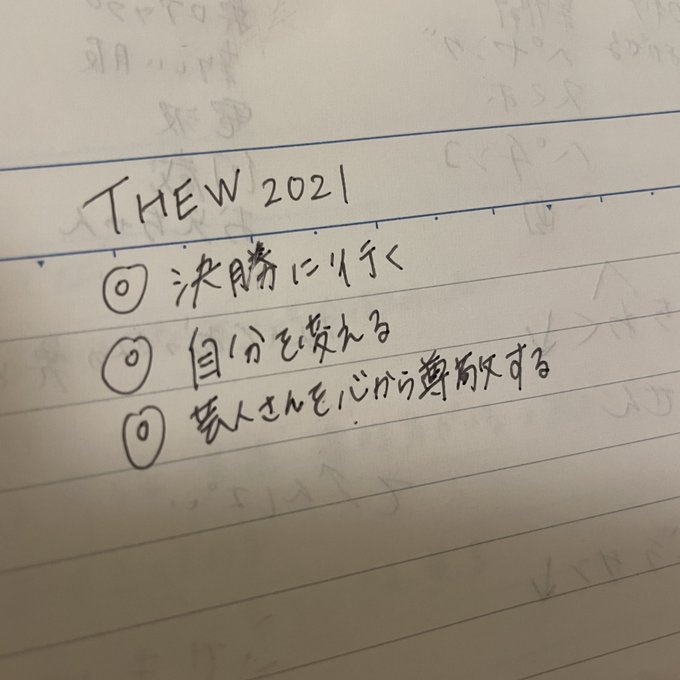 THE W 2021
◎ 決勝に行く
◎ 自分を変える
◎ 芸人さんを心から尊敬する